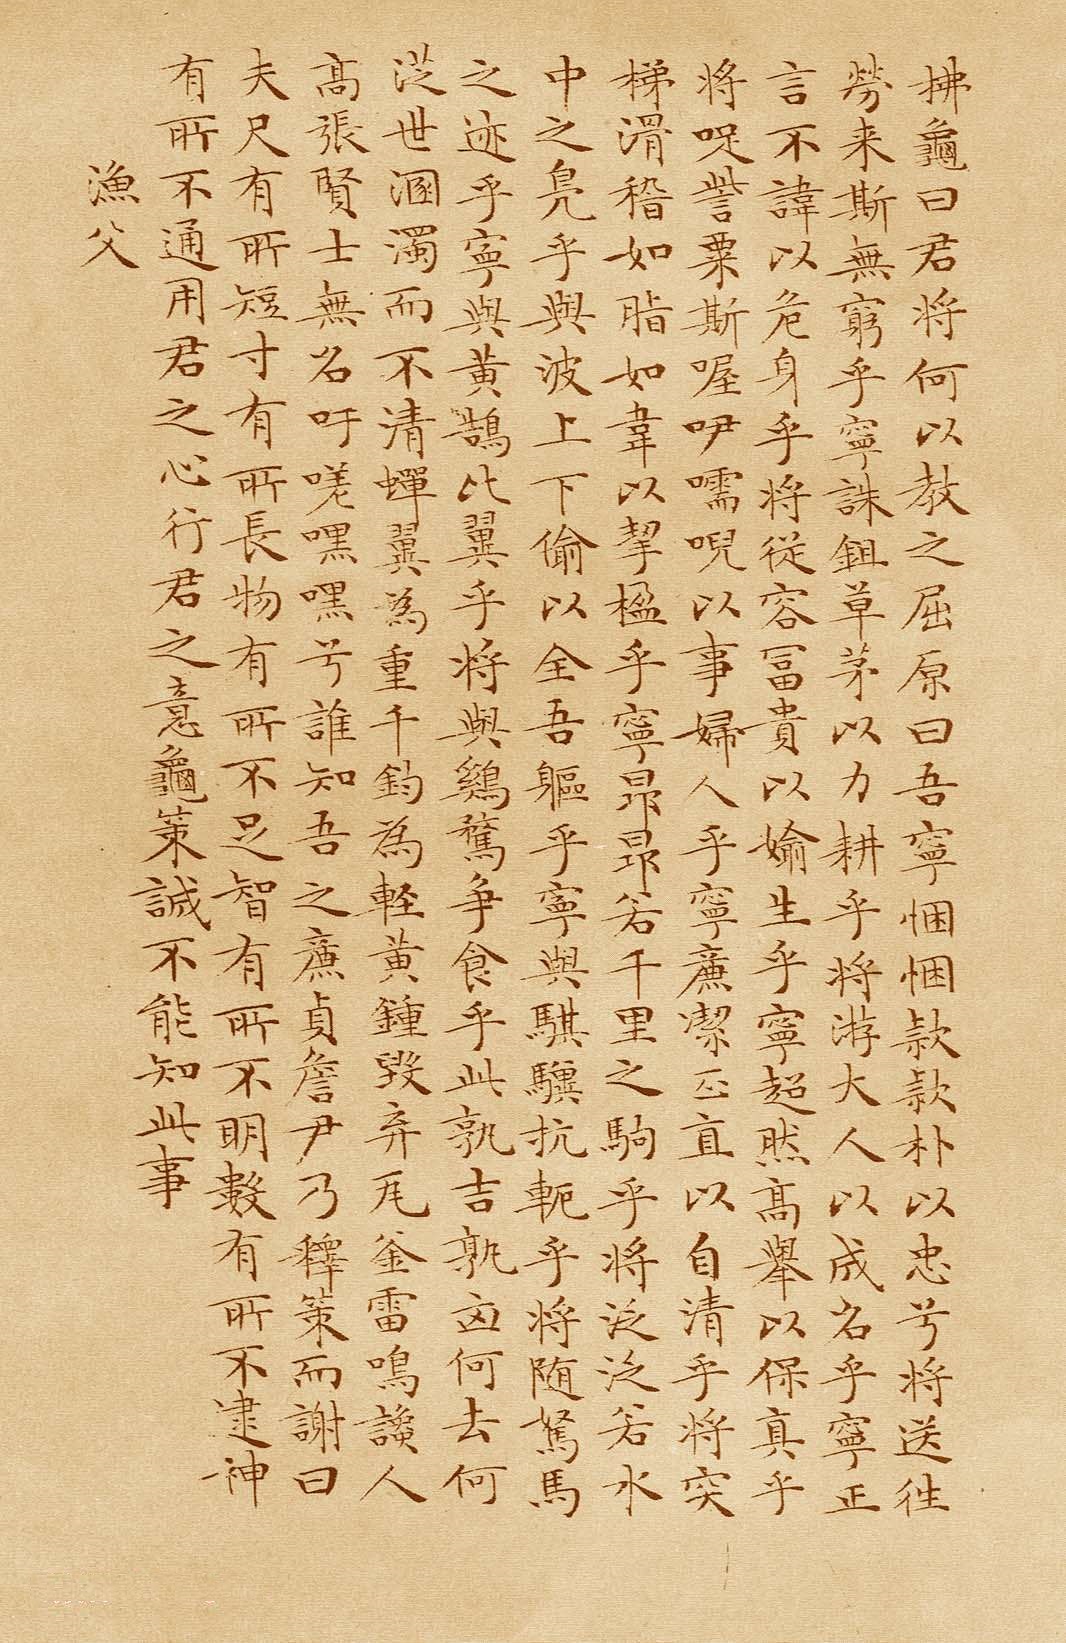 拂龜曰君将何以教之屈原曰吾寧悃悃款款朴以忠兮将送往
勞来斯無窮乎寧誅鉏草茅以力耕乎将游大人以成名乎寧正
言不諱以危身乎将從容冨貴以媮生乎寧超然高舉以保真乎
将哫訾粟斯喔咿嚅唲以事婦人乎寧廉潔正直以自清乎将突
梯滑稽如脂如韋以挈楹乎寧昂昂若千里之駒乎将泛泛若水
中之凫乎與波上下偷以全吾軀乎寧與騏驥抗軛乎将随駑馬
之迹乎寧與黄鵠比翼乎将與鷄鶩争食乎此孰吉孰凶何去何
從世溷濁而不清蟬翼為重千鈞為軽黄鍾毀弃瓦釜雷鳴讒人
高張賢士無名吁嗟嘿嘿兮誰知吾之廉貞詹尹乃釋策而謝曰
夫尺有所短寸有所長物有所不足智有所不明數有所不逮神
有所不通用君之心行君之意龜策誠不能知此事
漁父